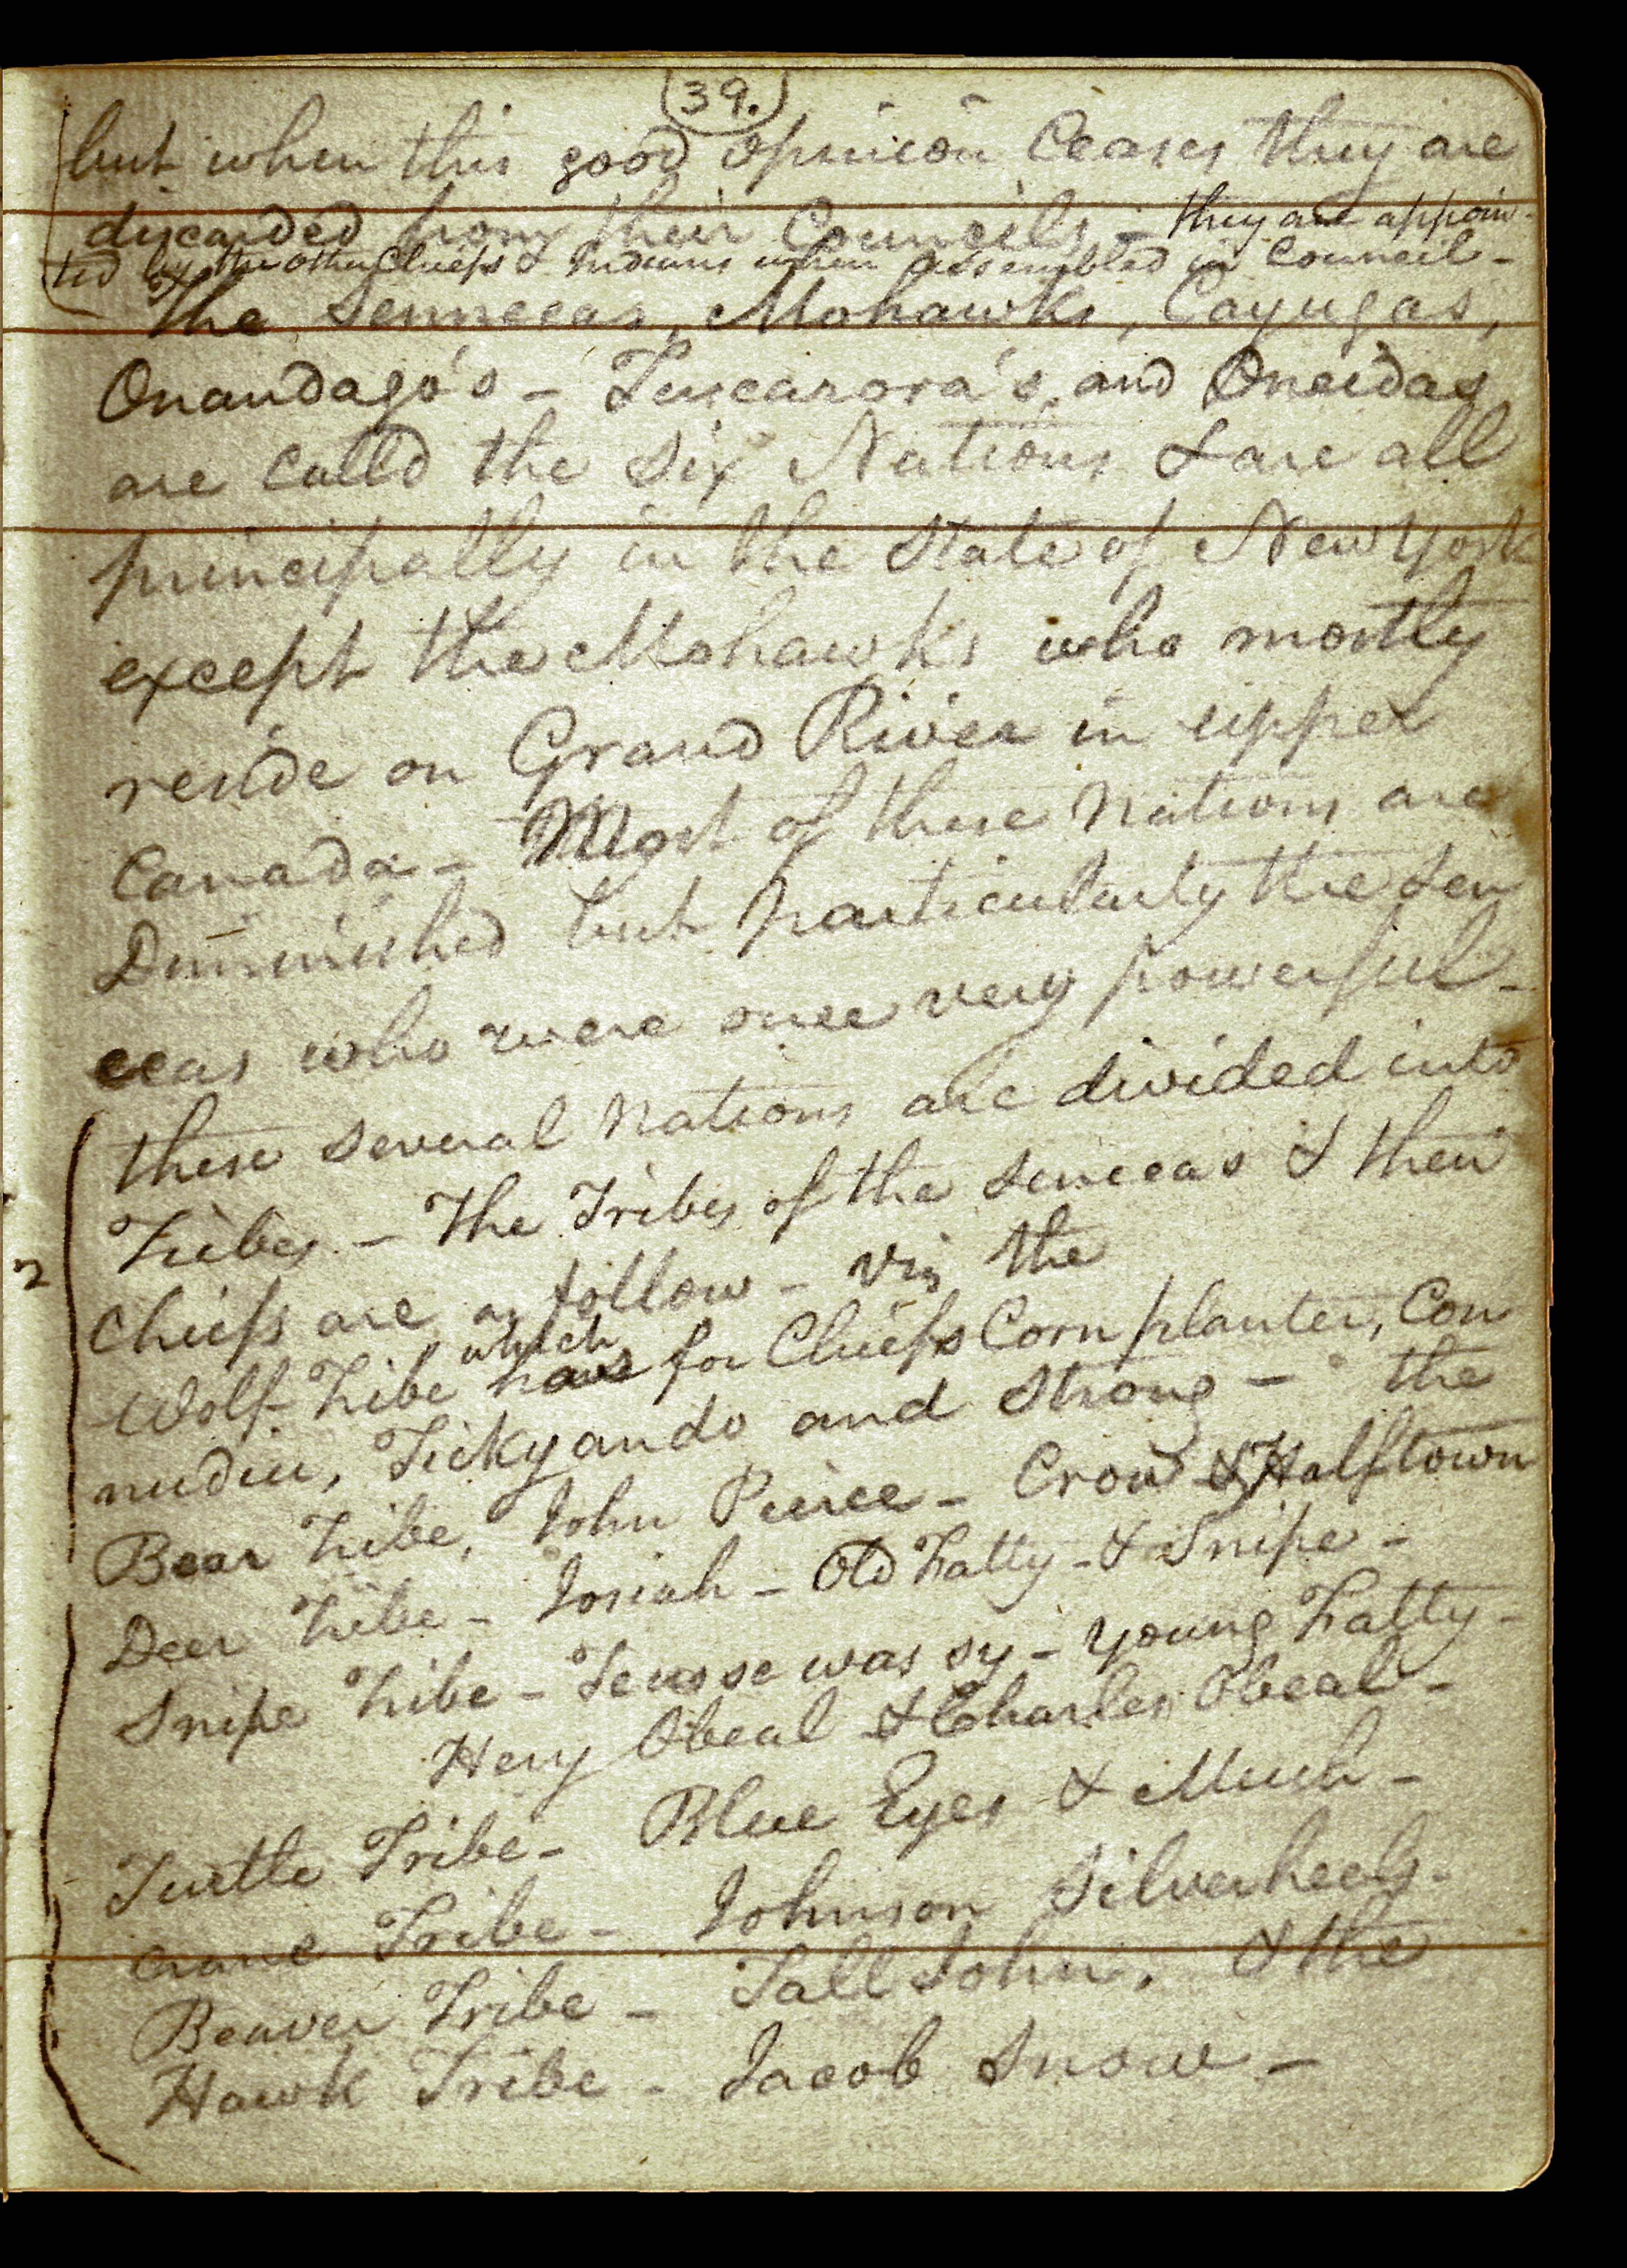 39.
but when this good opinion Ceases they are
discarded from their Councils - they are appoin-
ted by the other Chiefs & Indians when assembled in Council -
The Senneeas, Mohawks, Cayugas,
Onandago's - Tuscarora's, and Oneidas
are Calld the Six Nations & are all
principally in the State of New York
except the Mohawks who mostly
reside on Grand River in upper
Canada - Most of these Nations are
Diminished but particularly the Sen
ecas who were once very powerful -
these several Nations are divided into
Tribes - The Tribes of the Senecas & their
Chiefs are as follow - Viz the
Wolf Tribe which have for Chiefs Cornplanter, Con
nudiu, Tickyando and Strong - the
Bear Tribe, John Pierce - Crow & Halftown
Deer Tribe - Josiah - Old Fatty - & Snipe -
Snipe Tribe - Tekisse was sy - Young Fatty -
Heny Obeal & Charles Obeal -
Turtle Tribe - Blue Eyes & Mush -
Crane Tribe - Johnson Silverheels -
Beaver Tribe - Tall John, & the
Hawk Tribe - Jacob Snow -